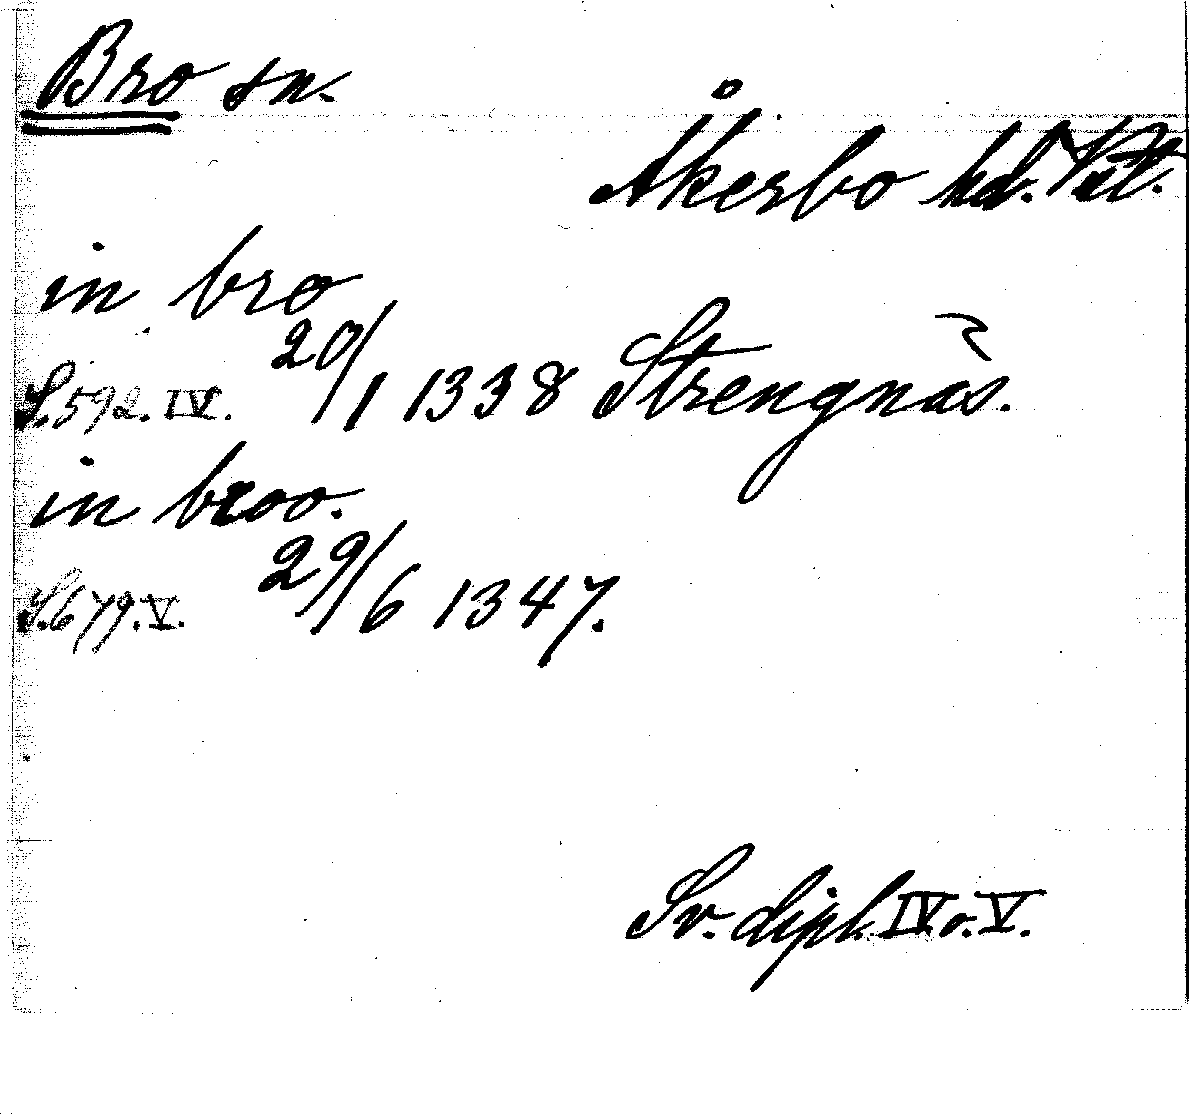 Bro sn.
Åkerbo hd. Vstl.
in bro
S. 592. IV. 20/1 1338 Strengnäs.
in broo.
S. 679. V. 29/6 1347.
Sv. dipl. IV o. V.